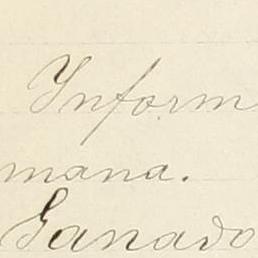 Inform
mana.
Ganado